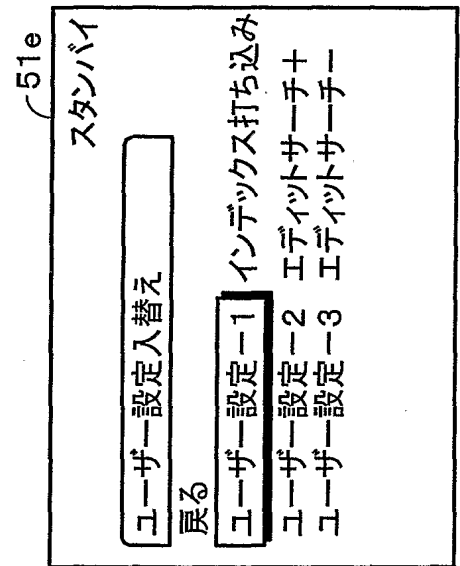 51e
スタンバイ
ユーザー設定入替え
戻る
ユーザー設定－1 インデックス打ち込み
ユーザー設定－2 エディットサーチ＋
ユーザー設定－3 エディットサーチ－